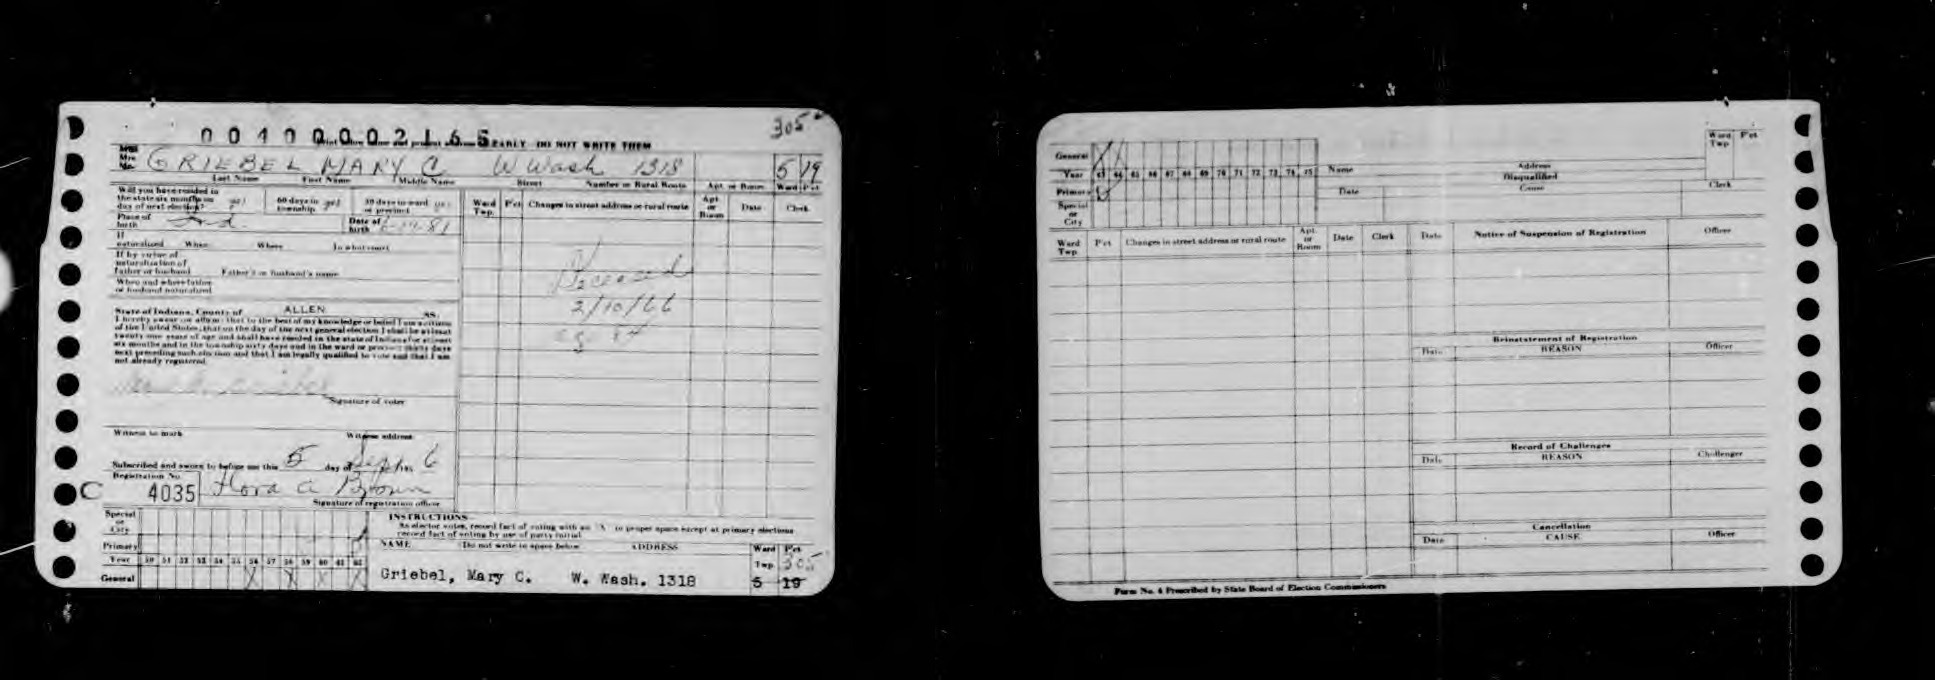 305
0 0 4 0 0 0 0 2 1 6 5 EARLY DO NOT WRITE THEM
Mrs. GRIEBEL MARY C W Wash 1318 5 19
Last Name First Name Middle Name Street Number or Rural Route Apt. or Room Ward Pct
Will you have resided in the state six months on day of next election? yes 60 days in township yes 30 days in ward or precinct yes
Place of birth Ind. Date of birth
If naturalized When Where In what court
If by virtue of naturalization of father or husband Father's or husband's name
When and where father or husband naturalized
Ward Twp. Pct Changes in street address or rural route Apt. or Room Date Clerk
Deceased
2/10/66
State of Indiana, County of ALLEN SS:
I hereby swear or affirm that to the best of my knowledge or belief I am a citizen
of the United States, that on the day of the next general election I shall be at least
twenty-one years of age and shall have resided in the state of Indiana for at least
six months and in the township sixty days and in the ward or precinct thirty days
next preceding such election and that I am legally qualified to vote and that I am
not already registered.
Signature of voter
Witness to mark Witness address
Subscribed and sworn to before me this 5 day of Sept 6
Registration No.
C 4035 Flora A Brown
Signature of registration officer
Special or City
Primary
Year 50 51 52 53 54 55 56 57 58 59 60 61 62
General
INSTRUCTIONS
As elector votes, record fact of voting with an X in proper space except at primary elections
record fact of voting by use of party initial
NAME Do not write in space below ADDRESS Ward Twp. Pct
305
Griebel, Mary C. W. Wash. 1318 5 19
General
Year 63 64 65 66 67 68 69 70 71 72 73 74 75
Primary
Special or City
Name Address Ward Twp. Pct
Disqualified
Date Cause Clerk
Ward Twp. Pct Changes in street address or rural route Apt. or Room Date Clerk
Date Notice of Suspension of Registration Officer
Reinstatement of Registration
Date REASON Officer
Record of Challenges
Date REASON Challenger
Cancellation
Date CAUSE Officer
Form No. 4 Prescribed by State Board of Election Commissioners